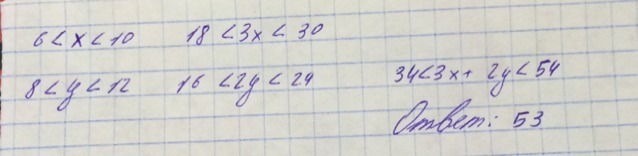 6 < x < 10 18 < 3x < 30
8 < y < 12 16 < 2y < 24
34 < 3x + 2y < 54
Ответ: 53